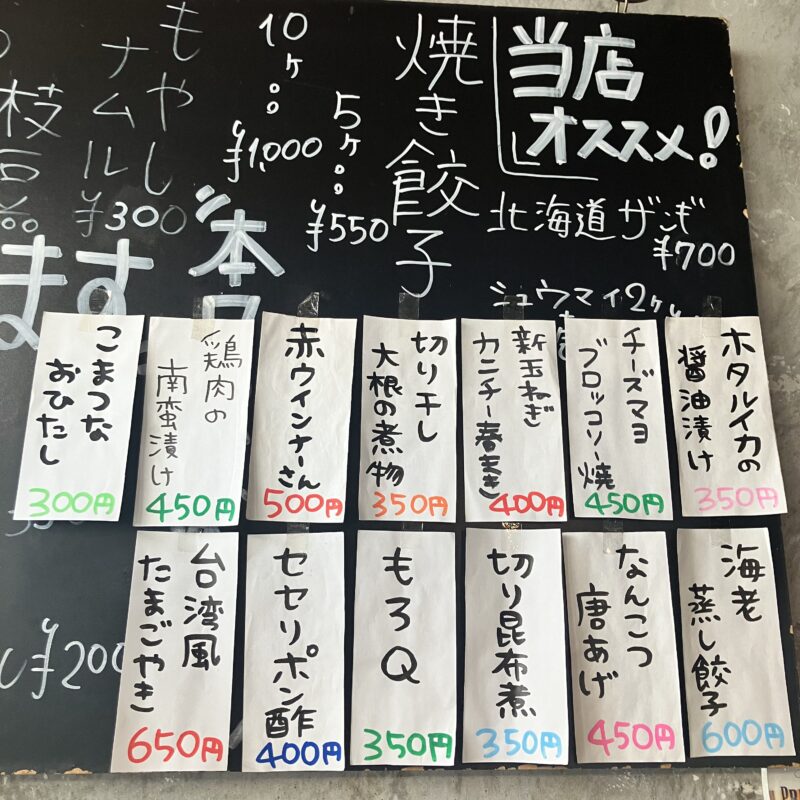 当店
オススメ!
北海道ザンギ
¥700
シュウマイ2ケ
焼き餃子
5ケ。。
¥550
10ケ。。
¥1,000
もやし
ナムル
¥300
枝豆
本日
ます
ホタルイカの
醤油漬け
350円
チーズマヨ
ブロッコリー焼
450円
新玉ねぎ
カニチー春まき
400円
切り干し
大根の煮物
350円
赤ウインナーさん
500円
鶏肉の
南蛮漬け
450円
こまつな
おひたし
300円
海老
蒸し餃子
600円
なんこつ
唐あげ
450円
切り昆布煮
350円
もろQ
350円
セセリポン酢
400円
台湾風
たまごやき
650円
¥200